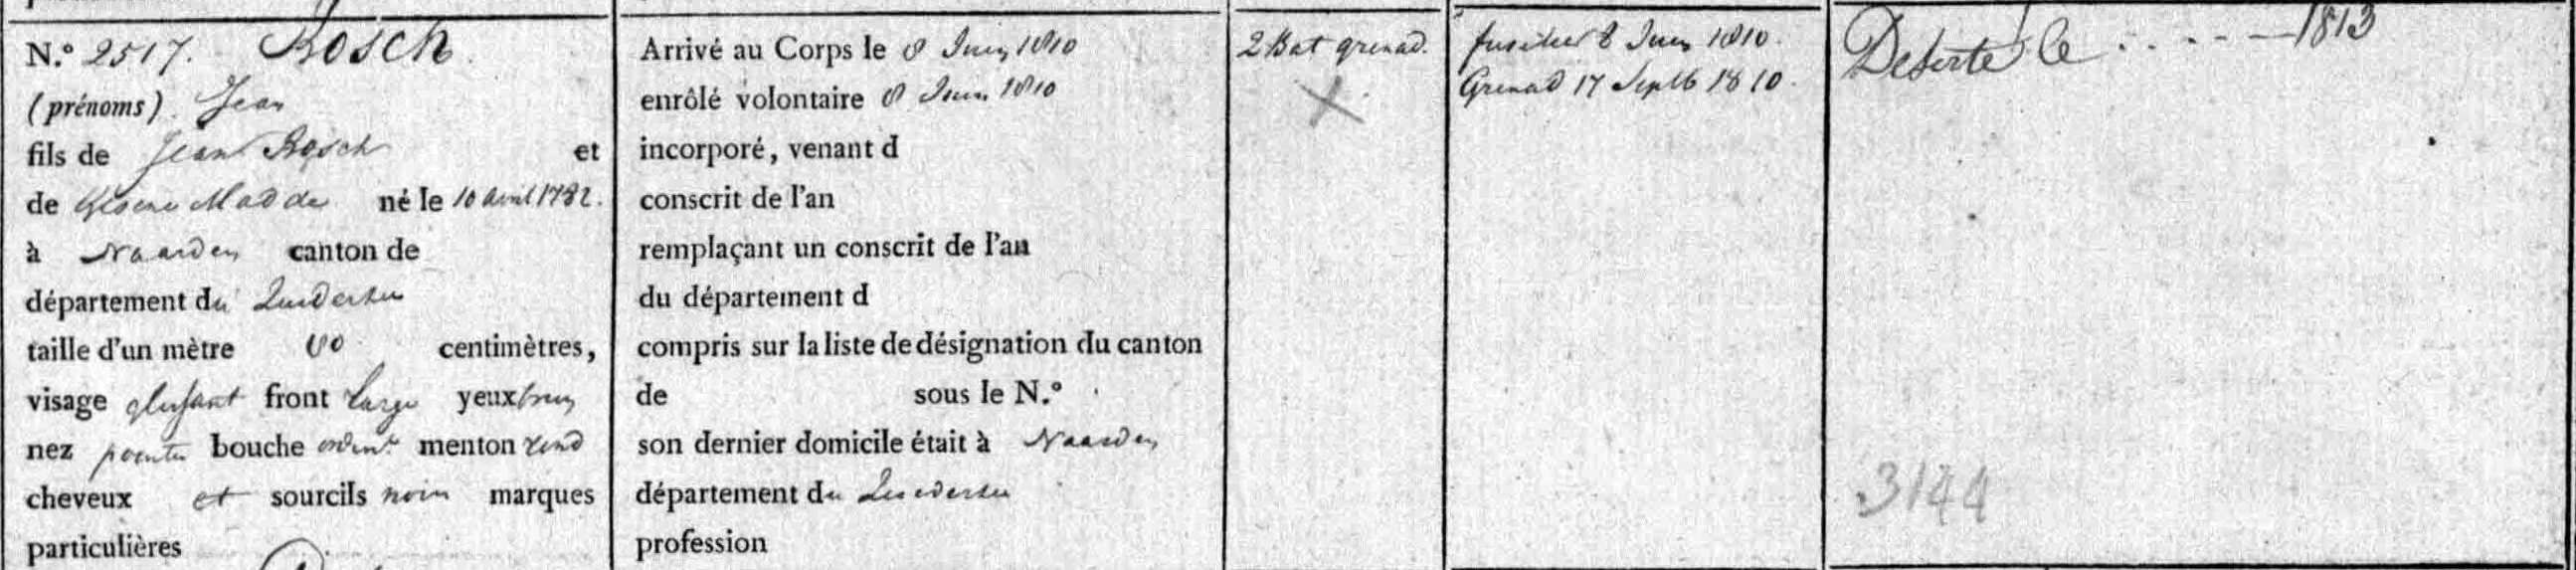 N.º 2517. Bosch
(prénoms). Jean
fils de Jean Bosch et
de Madde né le 10 avril 1782.
à Naarden canton de
département du Zuiderzee
taille d'un mètre 80 centimètres,
visage front large yeux brun
nez pointu bouche ordin.e menton rond
cheveux et sourcils noir marques
particulières
Arrivé au Corps le 8 Juin 1810
enrôlé volontaire 8 Juin 1810
incorporé, venant d
conscrit de l'an
remplaçant un conscrit de l'an
du département d
compris sur la liste de désignation du canton
de sous le N.º
son dernier domicile était à Naarden
département du Zuiderzee
profession
2 Bat grenad.
X
fusilier 8 Juin 1810.
Grenad 17 Septb 1810.
Deserté le . . - - — 1813
3144